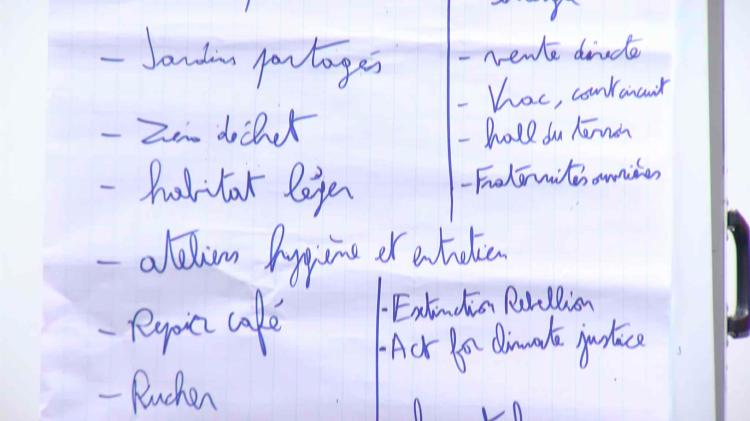 - Jardins partagés
- Zéro déchet
- habitat léger
- ateliers hygiène et entretien
- Repair café
- Rucher
- vente directe
- Vrac, court circuit
- hall du terroir
- Fraternités ouvrières
- Extinction Rebellion
- Act for climate justice